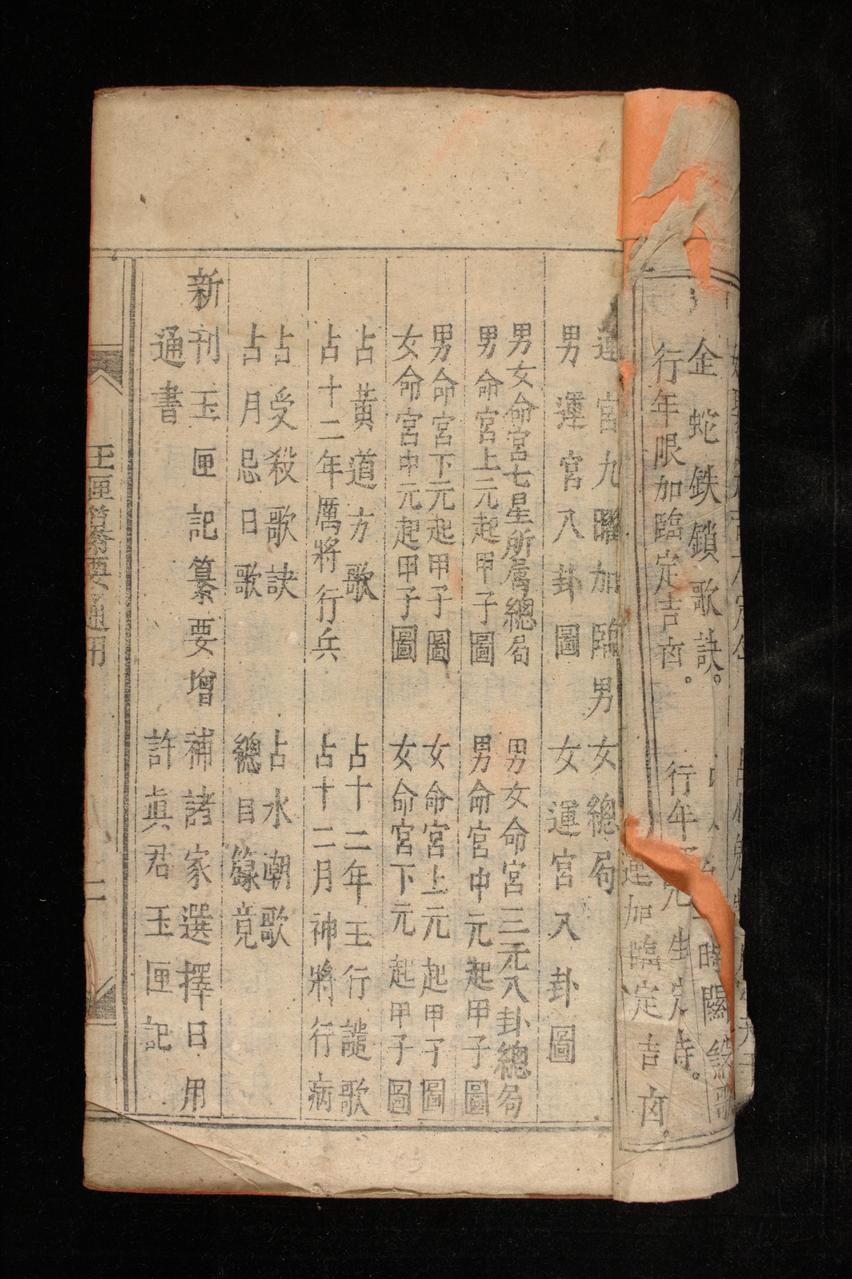 金蛇鉄鎖歌訣。
行年限加臨定吉㐫。
加臨定吉㐫。
運宮九曜加臨男女總局
男運宮八卦圖 女運宮八卦圖
男女命宮七星所属總局 男女命宮三元八卦總局
男命宮上元起甲子圖 男命宮中元起甲子圖
男命宮下元起甲子圖 女命宮上元起甲子圖
女命宮中元起甲子圖 女命宮下元起甲子圖
占黃道方歌 占十二年王行譴歌
占十二年厲將行兵 占十二月神將行病
占受殺歌訣 占水潮歌
占月忌日歌 總目録竟
新刊玉匣記纂要增補諸家選擇日用
通書 許眞君玉匣記